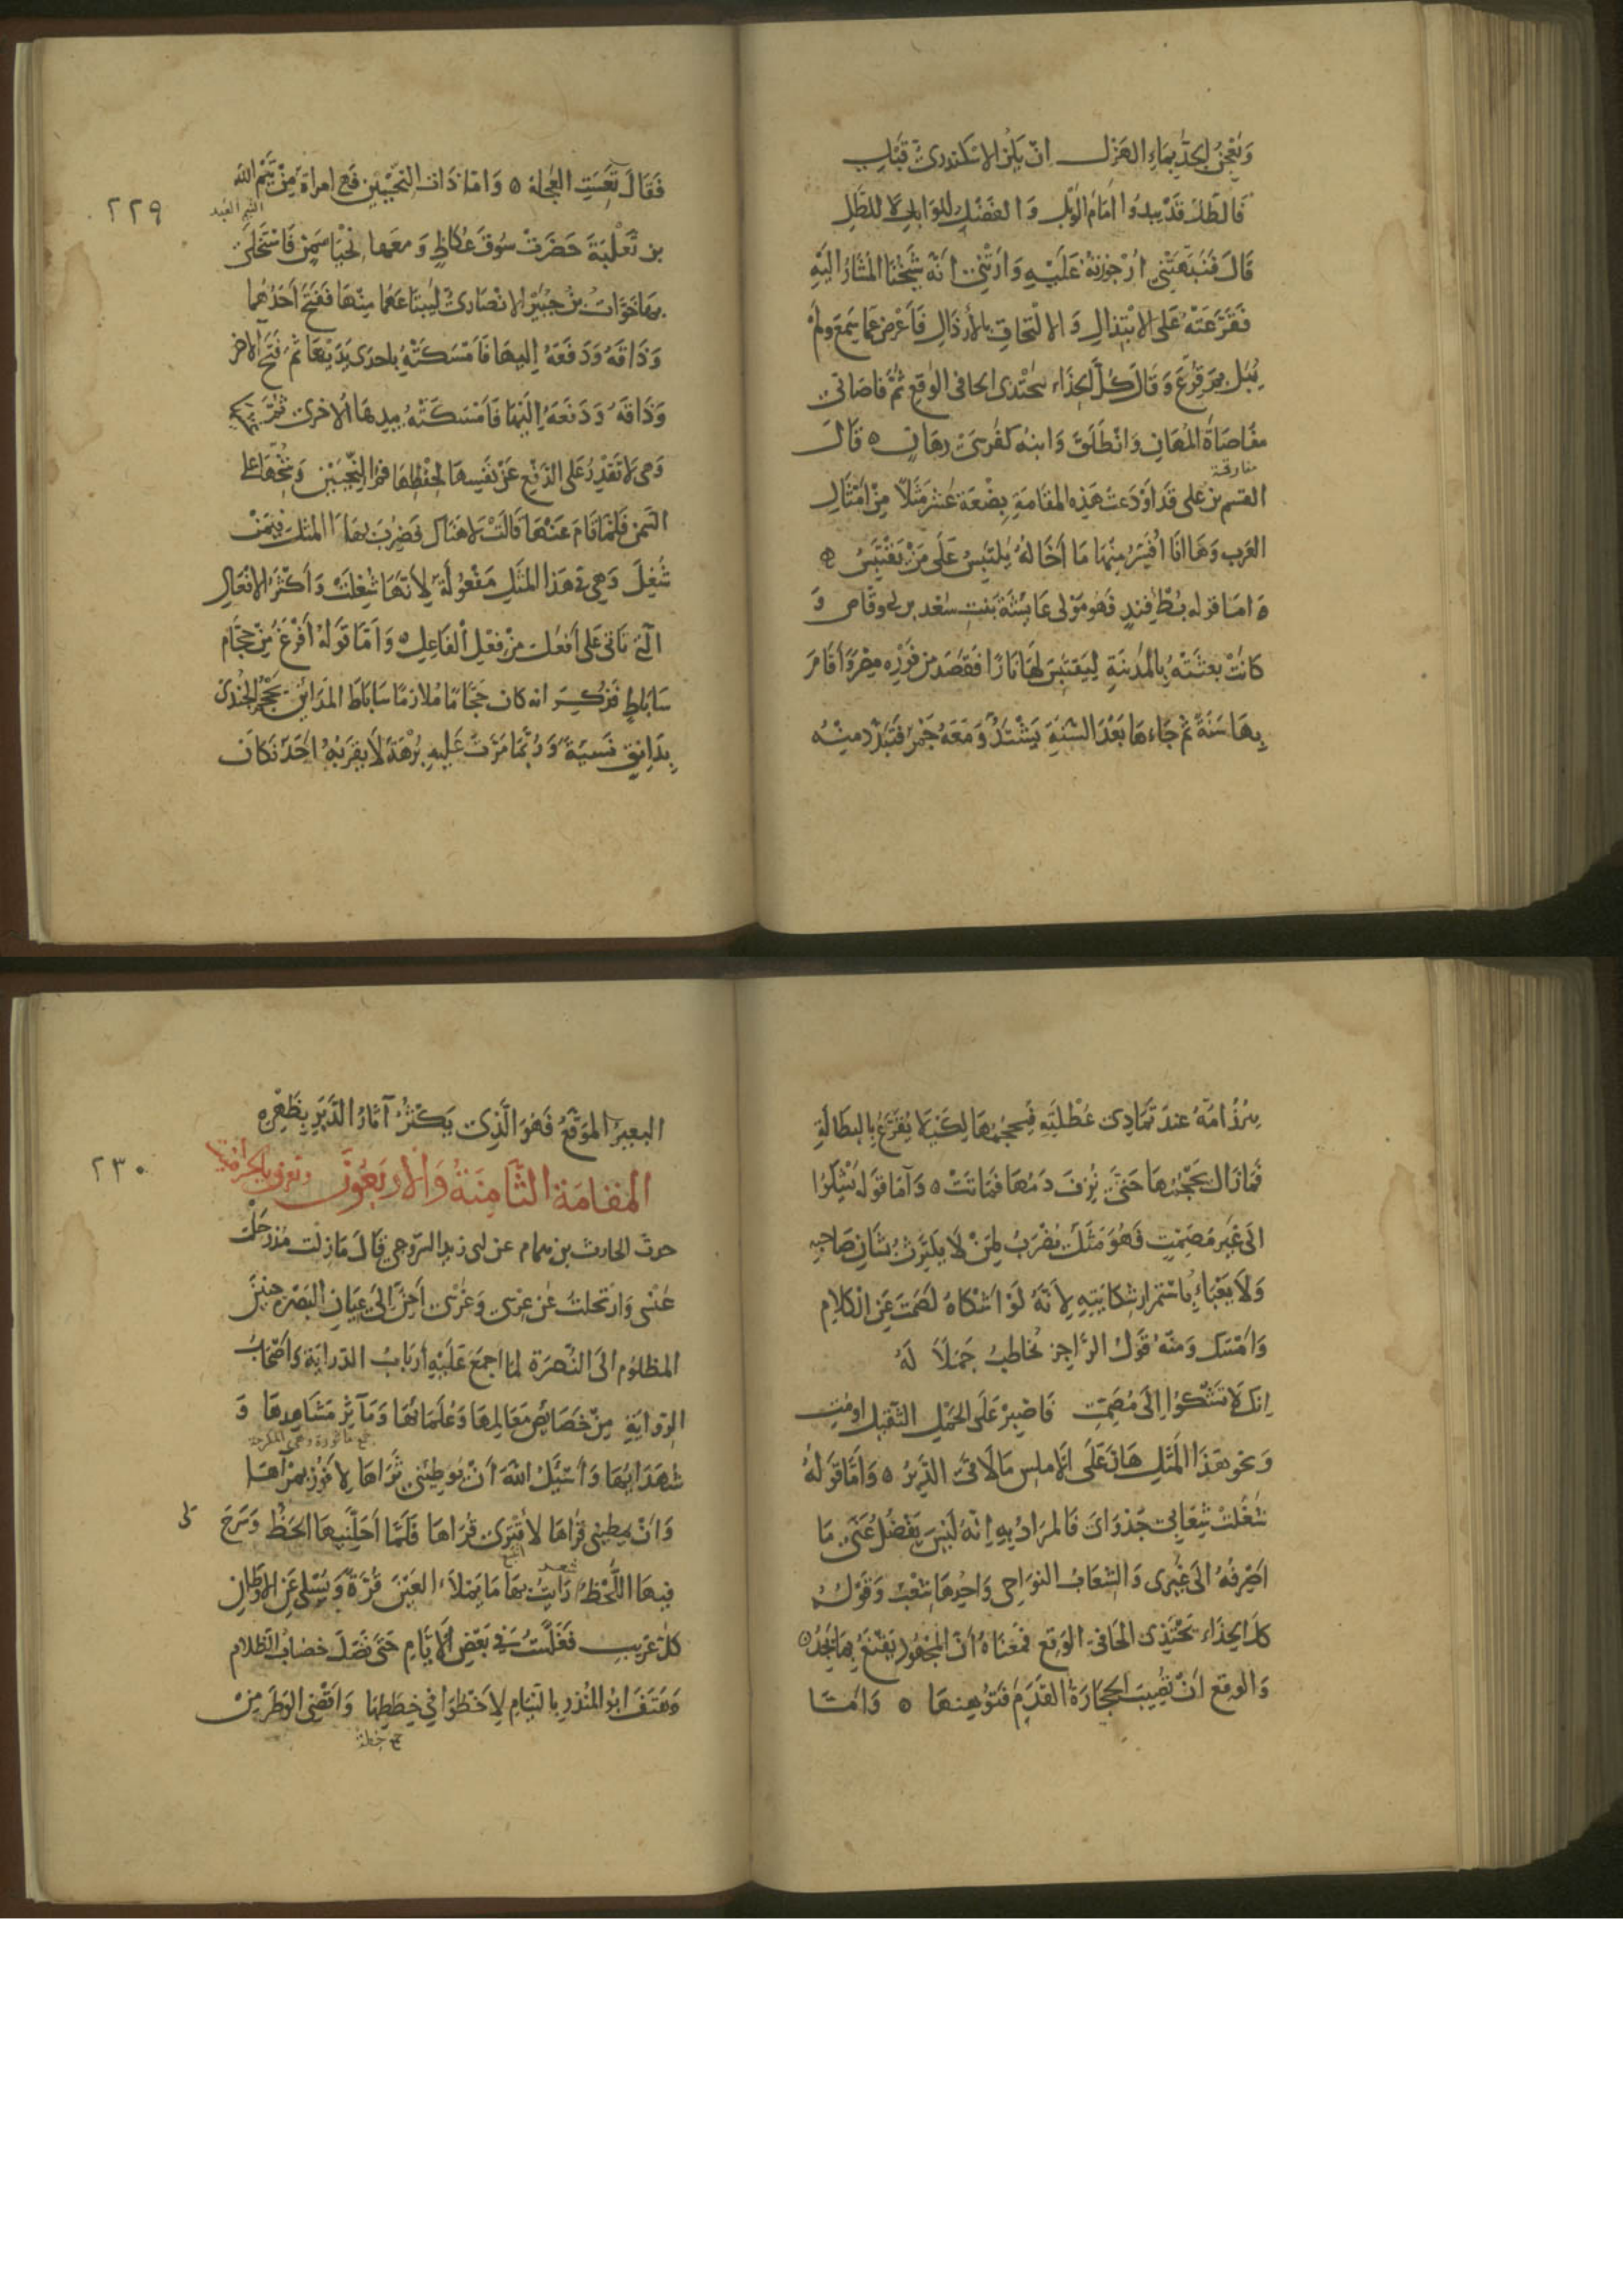 ويعجن الجد بماء الهزل ان يكن الاسكندري قبلي
فالطل قد يبدوا امام الوبل والفضل للوابل لا للطل
قال فنبهتني ارجوزته عليه وارتني انه شيخنا المشار اليه
فقرعته على الابتذال والالتحاق بالارذال فاعرض عما سمع ولم
يبل بمن قرع وقال كل الحذاء يحتذي الحافي الوقع ثم قاصاني
مقاصاة المهان وانطلق وابنه كفرسي رهان ٥ قال
مفارقة
القسم بن على قد اودعت هذه المقامة بضعة عشر مثلا من امثال
العرب وها انا افسر منها ما اخاله يلتبس على من يقتبس
٥ اما قوله بطؤ فند فهو مولى عايشة بنت سعد بن ابي وقاص و
كانت بعثته بالمدينة ليقتبس لها نارا فقصد من فوره مصر واقام
بها سنة ثم جاءها بعد السنة يشتد ومعه جمر فتبدد منه
٢٢٩
فقال تعست العجلة ٥ واما ذات النحيين فهي امراة من تيم الله
التيم العبد
بن ثعلبة حضرت سوق عكاظ ومعها نحيا سمن فاستخلى
بها خوات بن جبير الانصاري ليبتاعهما منها ففتح احدهما
وذاقه ودفعه اليها فامسكته باحدى يديها ثم فتح الاخر
وذاقه ودفعه اليها فامسكته بيدها الاخرى ثم
وهي لا تقدر على الدفع عن نفسها لحفظها فم النحيين وشحها على
السمن فلما قام عنها قالت لا هناك فضرب بها المثل فيمن
شغل وهي في هذا المثل مفعولة لانها شغلت واكثر الافعال
التي تاتي على افعل من فعل الفاعل ٥ واما قوله افرغ من حجام
ساباط فذكر انه كان حجاما ملازما ساباط المداين يحجم الجندي
بدانق نسية وربما مرت عليه برهة لا يقربه احد فكان
يبرز امه عند تمادي عطلته فيحجمها لكيلا يقرع بالبطالة
فما زال يحجمها حتى نزف دمها فماتت ٥ واما قوله تشكوا
الى غير مصمت فهو مثل يضرب لمن لا يكترث بشان صاحبه
ولا يعباء باستمرار شكايته لانه لو اشكاه لصمت عن الكلام
وامسك ومنه قول الراجز يخاطب جملا له
انك لا تشكوا الى مصمت فاصبر على الحمل الثقيل او مت
ونحو هذا المثل هان على الاملس ما لاقى الدبر ٥ واما قوله
شغلت شعابي جدواي فالمراد به انه ليس يفضل عني ما
اصرفه الى غيري والشعاب النواحي واحدها شعب وقوله
كل الحذاء يحتذي الحافي الوقع فمعناه ان المجهود يقنع بما يجد ٥
والوقع ان تصيب الحجارة القدم فتوهنها ٥ واما
٢٣٠
البعير الموقع فهو الذي يكثر آثار الدبر بظهره
المقامة الثامنة والاربعون وتعرف بالحرامية
حدث الحارث بن همام عن ابي زيد السروجي قال ما زلت مذ رحلت
عنسي وارتحلت عن عرسي وغرسي احن الى عيان البصرة حنين
المظلوم الى النصرة لما اجمع عليه ارباب الدراية واصحاب
الرواية من خصائص معالمها وعلمائها ومآثر مشاهدها و
جمع ماثورة وهي المكرمة
شهدائها واسئل الله ان يوطئني ثراها لافوز بمرآها
وان يمطيني قراها لاقتري قراها فلما احلنيها الحظ وسرح لي
فيها اللحظ رايت بها ما يملاء العين قرة ويسلي عن الاوطان
كل غريب فغلست في بعض الايام حتى نصل خضاب الظلام
وهتف ابو المنذر بالنيام لاخطوا في خططها واقضي الوطر من
جمع خطة